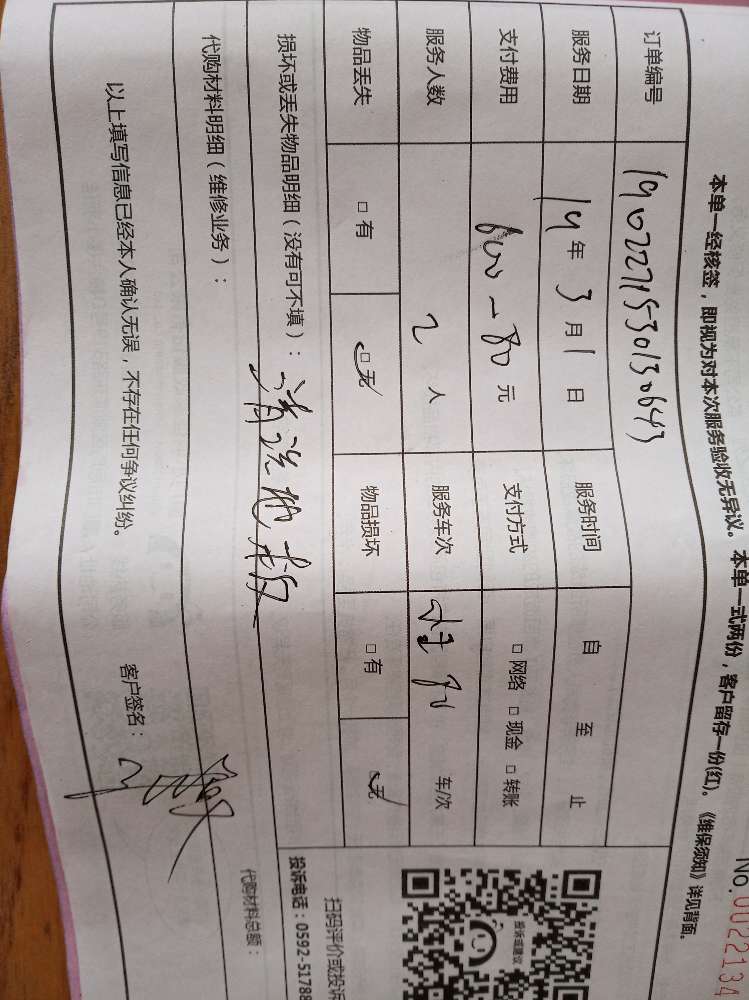 No.0022134
本单一经核签，即视为对本次服务验收无异议。本单一式两份，客户留存一份(红)。《维保须知》详见背面。
订单编号
服务日期 19年3月1日 服务时间 自 至 止
支付费用 600-80元 支付方式 □网络 □现金 □转账
服务人数 2人 服务车次 车/次
物品丢失 □有 □无 物品损坏 □有 无
损坏或丢失物品明细（没有可不填）： 清洗地
代购材料明细（维修业务）：
代购材料总额：
以上填写信息已经本人确认无误，不存在任何争议纠纷。 客户签名：
投诉或建议
扫码评价或投诉
投诉电话：0592-51788